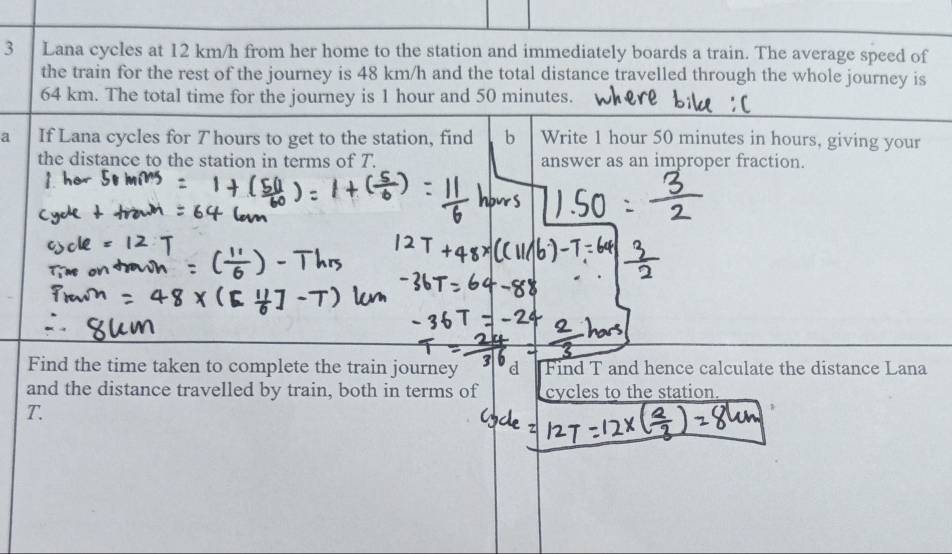 3 Lana cycles at 12 km/h from her home to the station and immediately boards a train. The average speed of
the train for the rest of the journey is 48 km/h and the total distance travelled through the whole journey is
64 km. The total time for the journey is 1 hour and 50 minutes. where bike :(
a If Lana cycles for T hours to get to the station, find
the distance to the station in terms of T.
1 hor 50 mins = 1 + (50/60) = 1 + (5/6) = 11/6 hours
cycle + train = 64 km
cycle = 12 T
Time on train = (11/6) - T hrs
Train = 48 × ([11/6] - T) km
∴ 8km
12T + 48 × ((11/6) - T = 64
-36T = 64 - 88
-36T = -24
T = 24/36 = 2/3 hors
b Write 1 hour 50 minutes in hours, giving your
answer as an improper fraction.
1.50 = 3/2
3/2
Find the time taken to complete the train journey
and the distance travelled by train, both in terms of
T.
d Find T and hence calculate the distance Lana
cycles to the station.
cycle = 12T = 12 × (2/3) = 8km